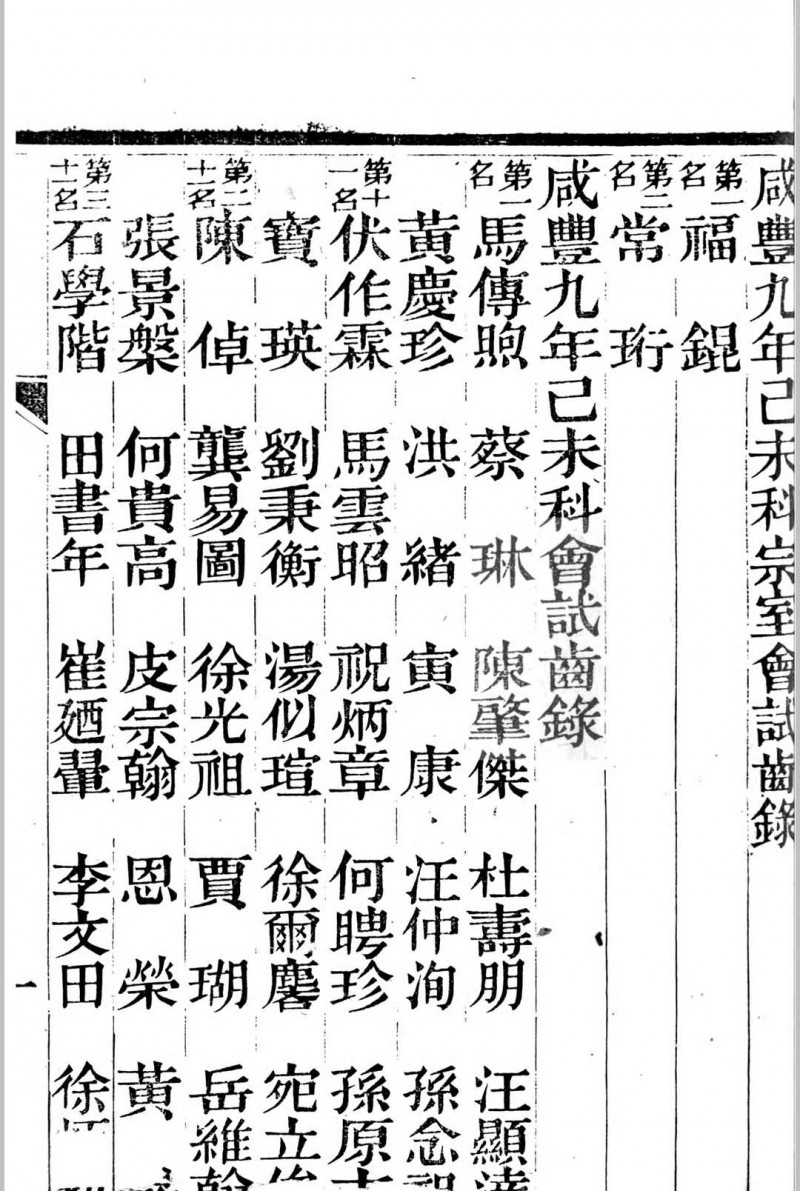 咸豐九年己未科宗室會試齒錄
第一名 福錕
第二名 常珩
咸豐九年己未科會試齒錄
第一名 馬傳煦 蔡琳 陳肇傑 杜壽朋 汪顯達
黃慶珍 洪緒 寅康 汪仲洵 孫念祖
第十一名 伏作霖 馬雲昭 祝炳章 何聘珍 孫原
寶瑛 劉秉衡 湯似瑄 徐爾麐 宛立
第二十一名 陳倬 龔易圖 徐光祖 賈瑚 岳維翰
張景槃 何貴高 皮宗翰 恩榮 黃
第三十一名 石學階 田書年 崔廼翬 李文田 徐
一